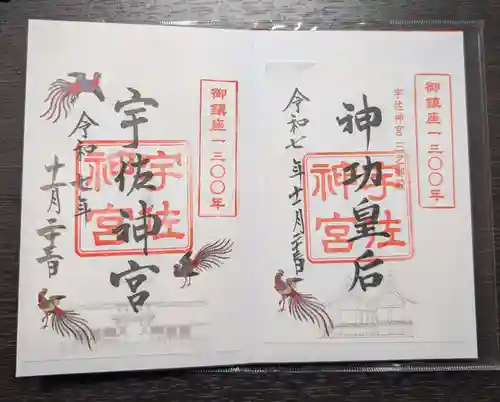 御鎮座一三〇〇年
宇佐神宮
宇佐神宮
令和七年
十一月二十三日
御鎮座一三〇〇年
宇佐神宮
神功皇后
宇佐神宮
令和七年十一月二十三日